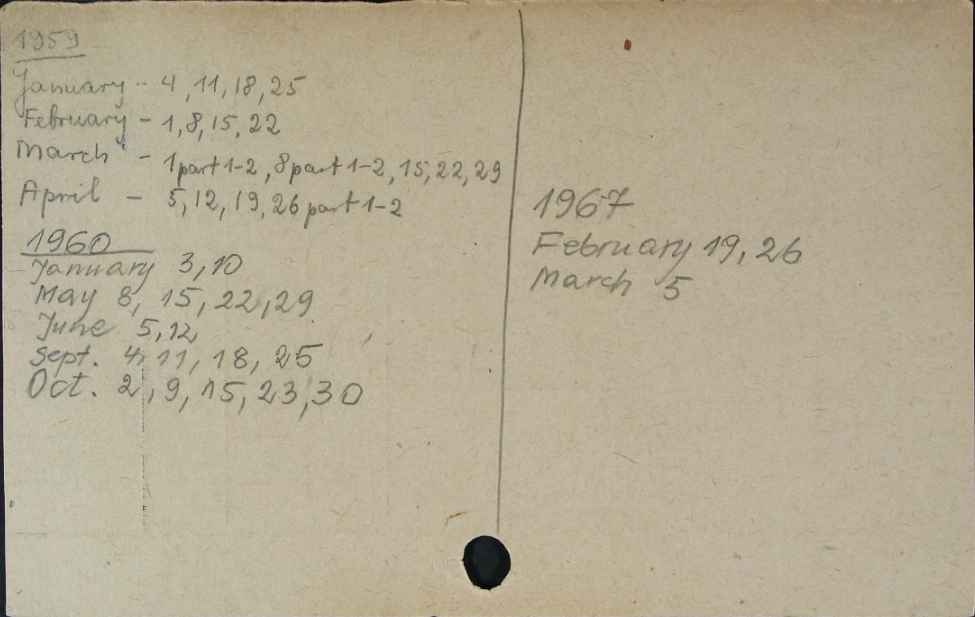 1959
January - 4, 11, 18, 25
February - 1, 8, 15, 22
March - 1 part 1-2, 8 part 1-2, 15, 22, 29
April - 5, 12, 19, 26 part 1-2
1960
January 3, 10
May 8, 15, 22, 29
June 5, 12
Sept. 4, 11, 18, 25
Oct. 2, 9, 15, 23, 30
1967
February 19, 26
March 5